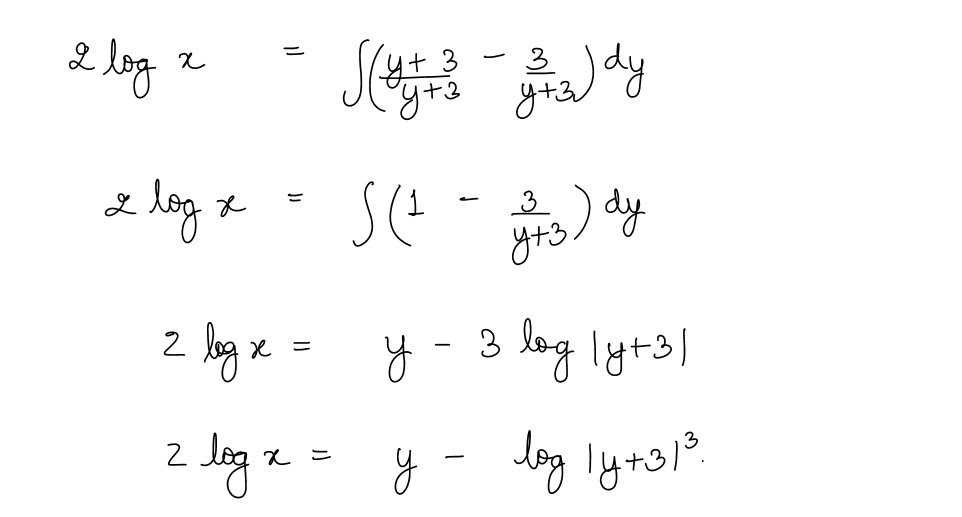 2 log x = ∫((y+3)/(y+3) - 3/(y+3)) dy
2 log x = ∫(1 - 3/(y+3)) dy
2 log x = y - 3 log |y+3|
2 log x = y - log |y+3|³.